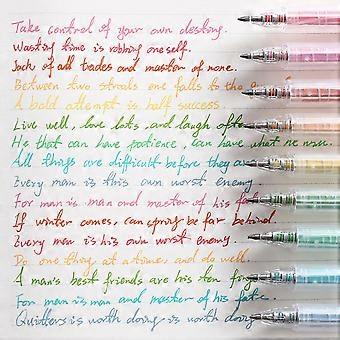 Take control of your own desting.
Wasting time is robbing oneself.
Jack of all trades and master of none.
Between two stools one falls to the
A bold attempt is half success.
Live well, love lots, and laugh often
He that can have patience, can have what he
All things are difficult before they are
Every man is this own worst enemy.
For man is man and master of his
If winter comes, can spring be far behind.
Every men is his own worst enemy.
Do one thing at a time, and do well.
A man's best friends are his ten
For man is man and master of his fate.
Quitters is worth doing is worth doing